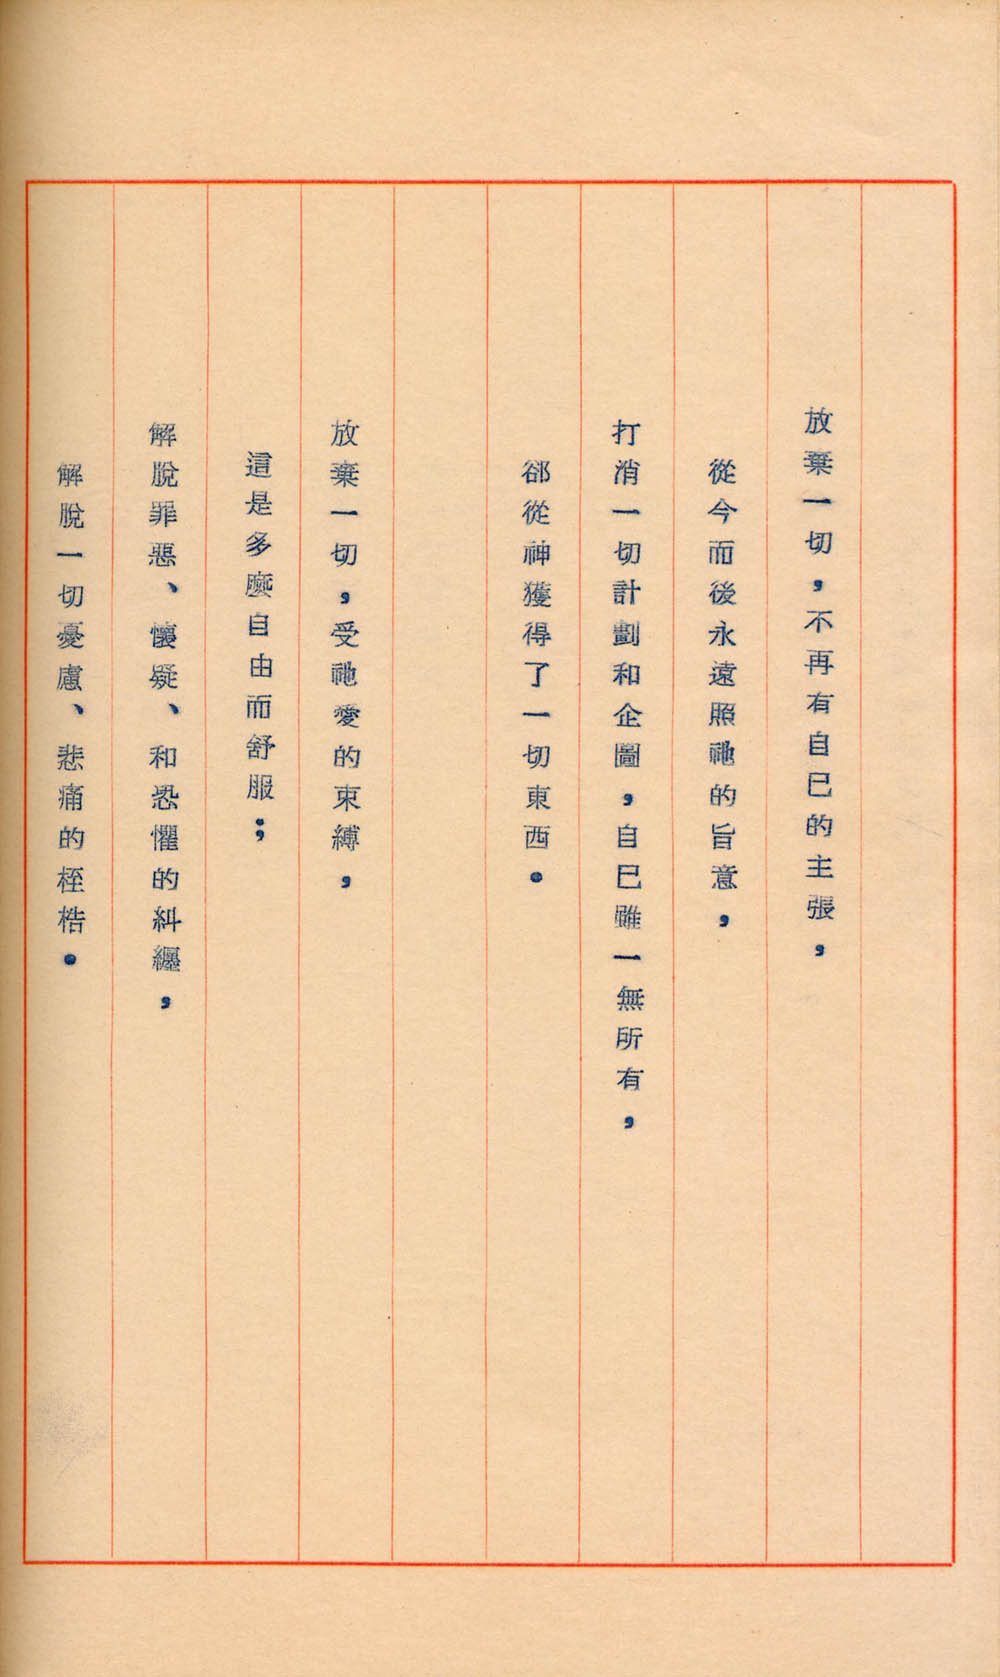 放棄一切，不再有自已的主張，
從今而後永遠照祂的旨意，
打消一切計劃和企圖，自已雖一無所有，
郤從神獲得了一切東西。
放棄一切，受祂愛的束縛，
這是多麼自由而舒服；
解脫罪惡、懷疑、和恐懼的糾纏，
解脫一切憂慮、悲痛的桎梏。